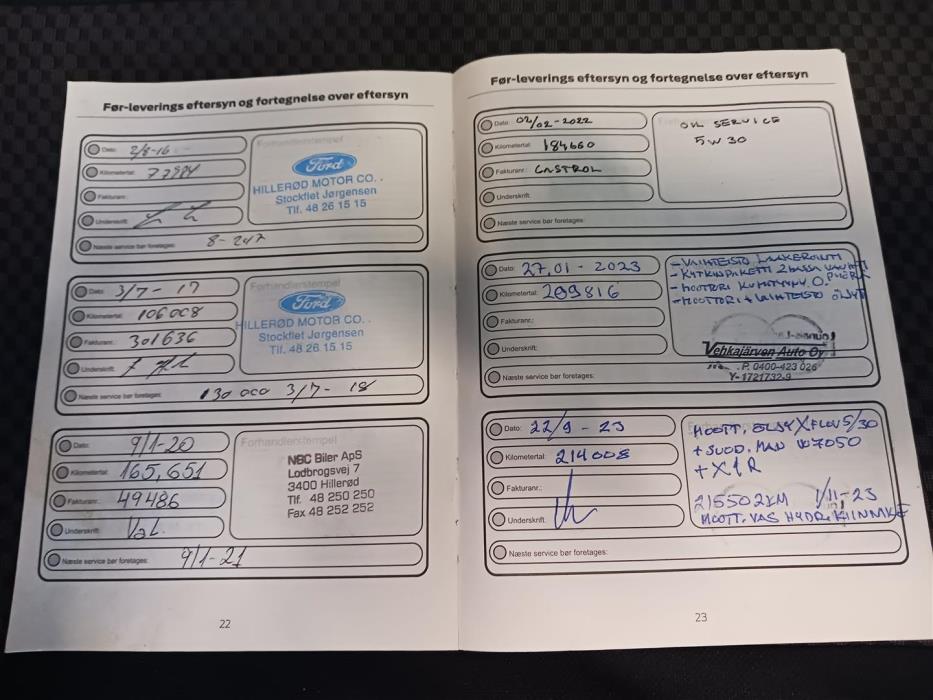 Før-leverings eftersyn og fortegnelse over eftersyn
Dato: 2/8-16
Kilometertal:
Fakturanr.:
Underskrift:
Næste service bør foretages:
Ford
HILLERØD MOTOR CO.
Stockflet Jørgensen
Tlf. 48 26 15 15
Dato: 3/7-17
Kilometertal: 106008
Fakturanr.: 301636
Underskrift:
Næste service bør foretages: 130 000 3/7-18
Forhandlerstempel
Ford
HILLERØD MOTOR CO.
Stockflet Jørgensen
Tlf. 48 26 15 15
Dato: 9/1-20
Kilometertal: 165,651
Fakturanr.: 49486
Underskrift:
Næste service bør foretages: 9/1-21
Forhandlerstempel
NBC Biler ApS
Lodbrogsvej 7
3400 Hillerød
Tlf. 48 250 250
Fax 48 252 252
22
Før-leverings eftersyn og fortegnelse over eftersyn
Dato: 02/02-2022
Kilometertal: 184660
Fakturanr.: CASTROL
Underskrift:
Næste service bør foretages:
OIL SERVICE
5W30
Dato: 27.01-2023
Kilometertal: 209816
Fakturanr.:
Underskrift:
Næste service bør foretages:
- VAIHTEISTO LAAKEROINTI
- KYTKINPAKETTI 2 MASSA
- MOOTTORI
- MOOTTORI + VAIHTEISTO ÖLJYT
Vehkajärven Auto Oy
P. 0400-423 026
Y-1721732-9
Dato: 22/9-23
Kilometertal: 214008
Fakturanr.:
Underskrift:
Næste service bør foretages:
MOOTT. ÖLJY XFLOW 5/30
+ SUOD. MAN W7050
+ X1R
215502KM 1/11-23
MOOTT. VAS HYDR. KIINNIKE
23